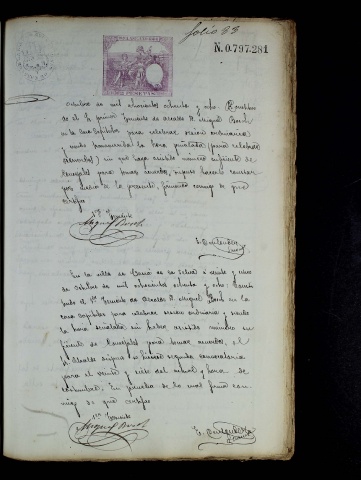 folio 33
N.0.797.281
octubre de mil ochocientos ochenta y ocho. Reunidos
el Sr primer Teniente de Alcalde D. Miguel Bosch
en la Casa Capitular para celebrar sesion ordinaria
y siendo la hora señalada (para celebrar
sin que haya asistido número suficiente de
Concejales para tomar acuerdos, se hace constar
por medio de la presente, firmando conmigo de que
certifico
1er Teniente
Miguel Bosch
En la villa de de la Selva a veinte y cinco
de Octubre de mil ochocientos ochenta y ocho:
el 1er Teniente de Alcalde D. Miguel Bosch en la
casa Capitular para celebrar sesion ordinaria, y siendo
la hora señalada sin haber asistido número su-
ficiente de Concejales para tomar acuerdos, el
Sr Alcalde dispuso se hiciera segunda convocatoria
para el veinte y siete del actual y hora de
costumbre. En prueba de lo cual firma con-
migo de que certifico
1er Teniente
Miguel Bosch